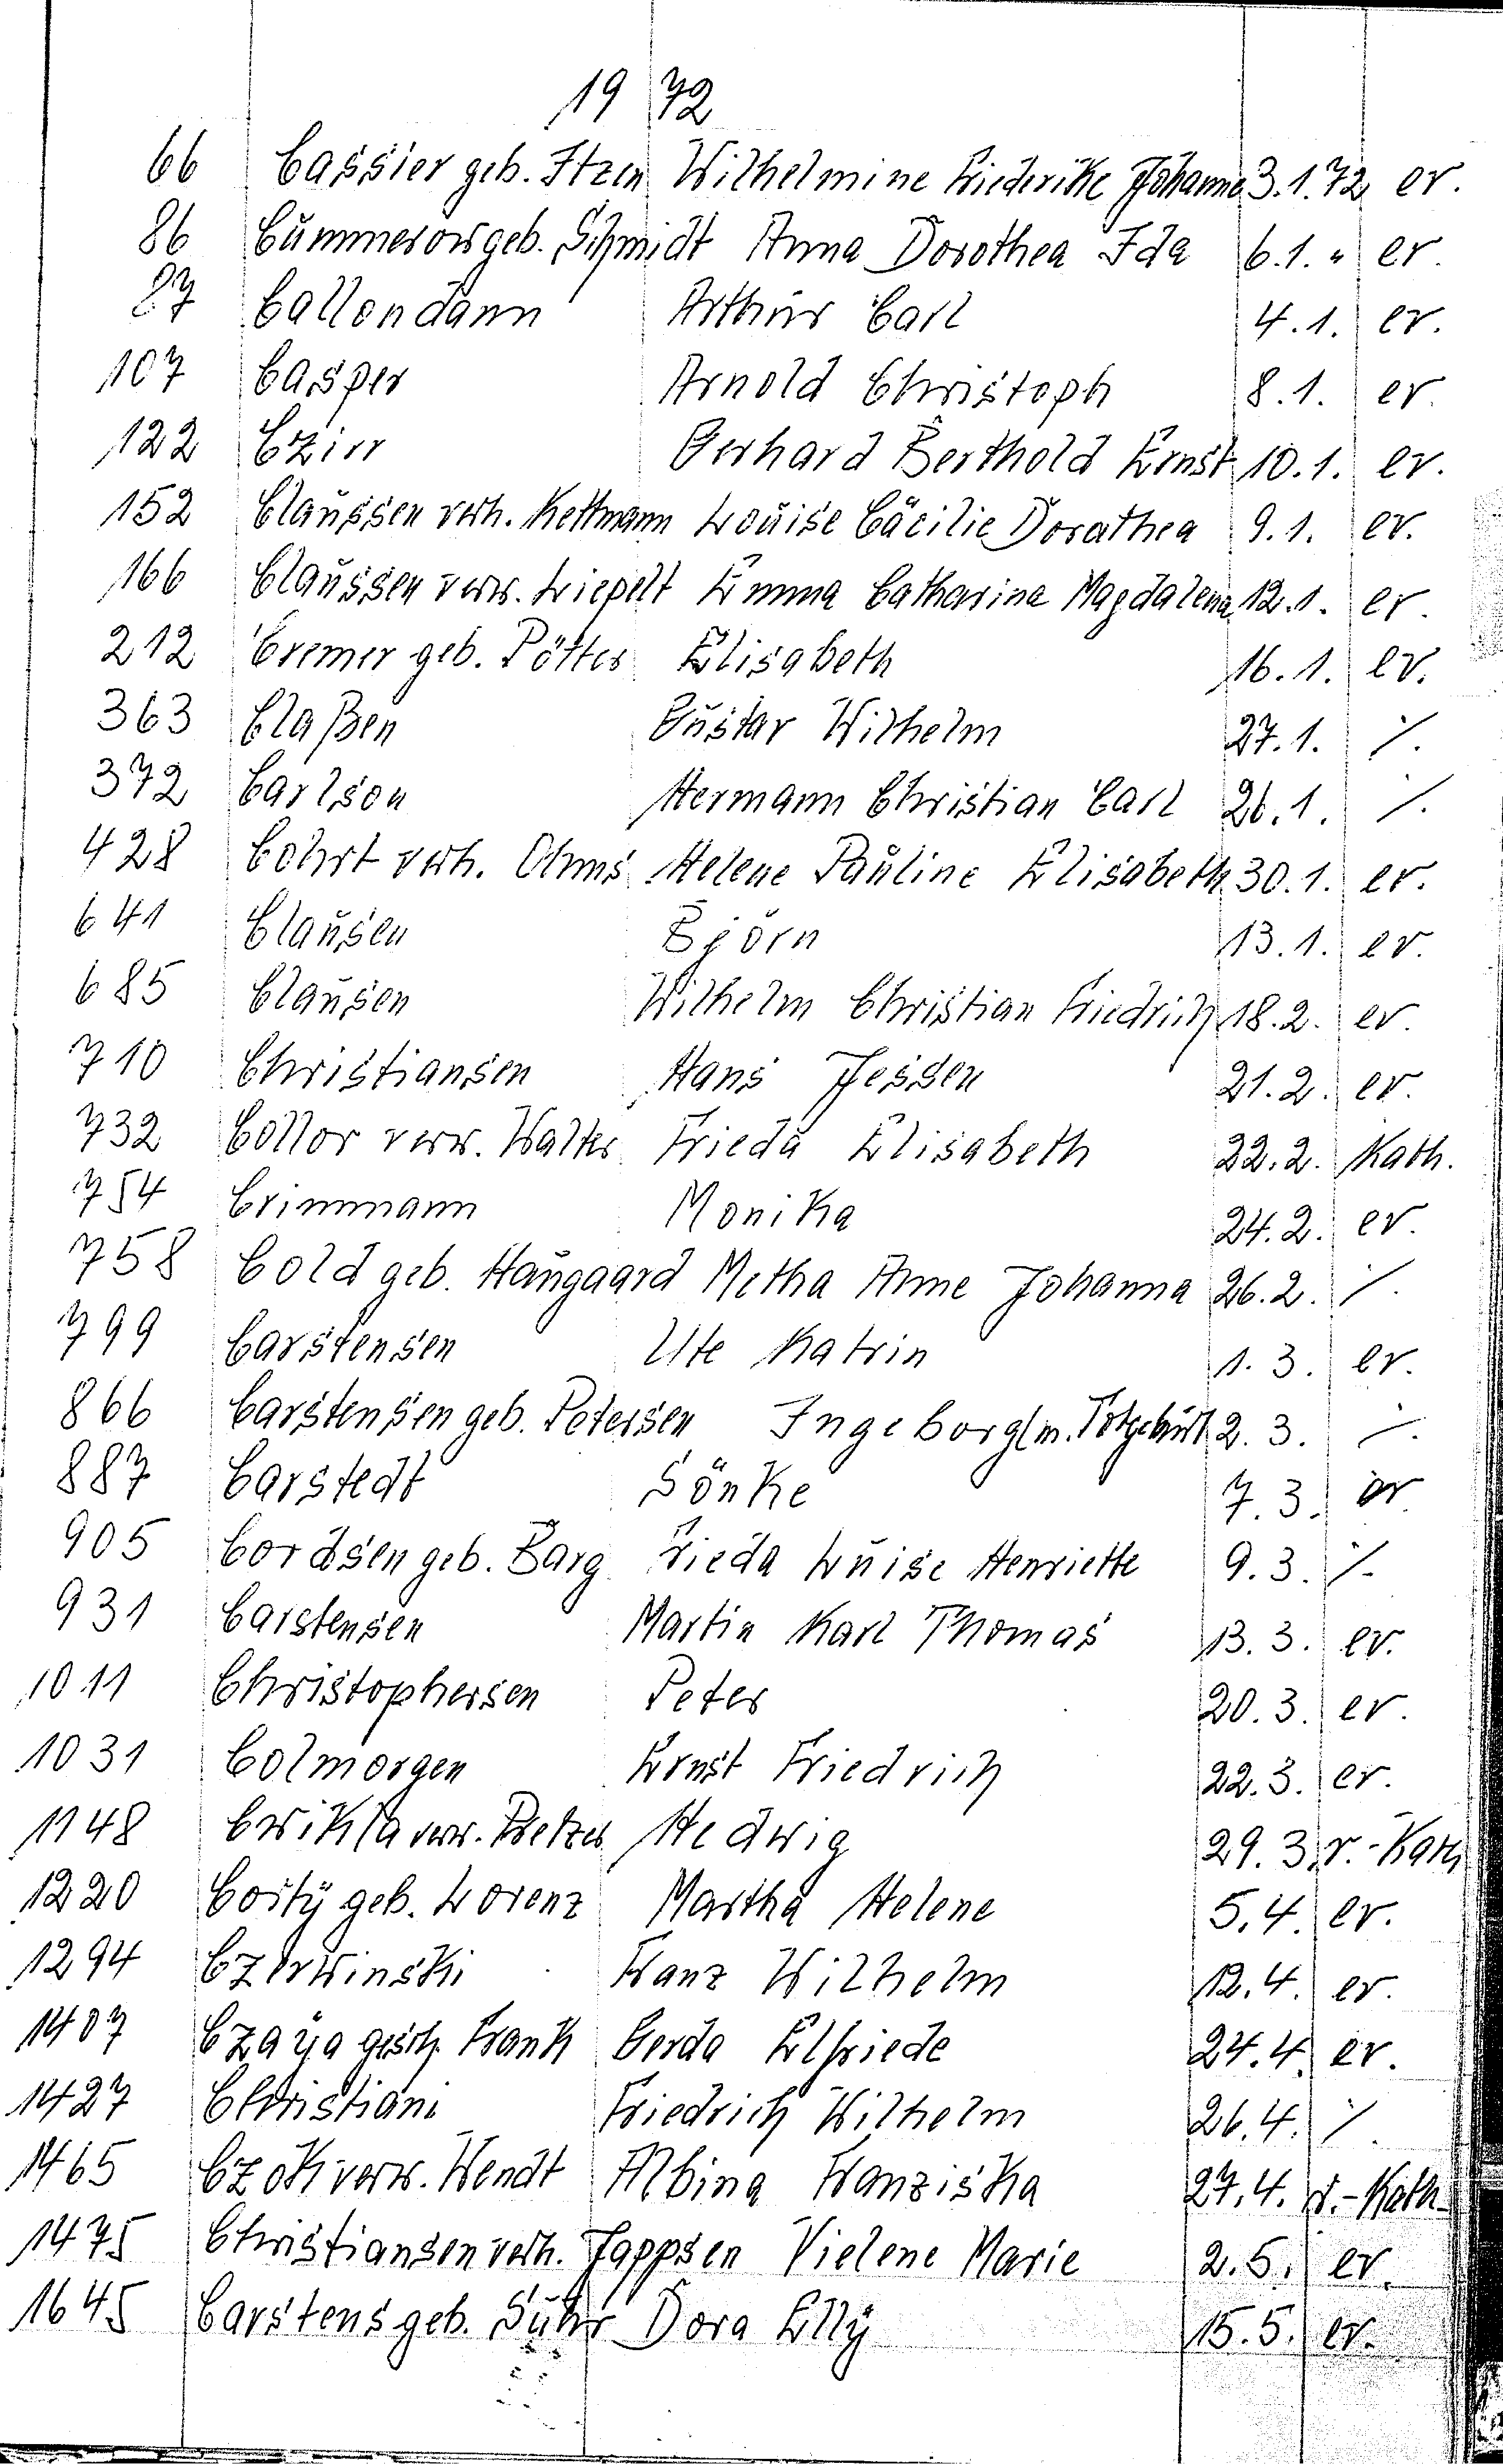 1972
66 Cassier geb. Itzen Wilhelmine Friederike Johanne 3.1.72 ev.
86 Cummerow geb. Schmidt Anna Dorothea Ida 6.1. " ev.
87 Callondann Arthur Carl 4.1. ev.
107 Casper Arnold Christoph 8.1. ev.
122 Czirr Gerhard Berthold Ernst 10.1. ev.
152 Claussen verh. Kettmann Louise Cäcilie Dorathea 9.1. ev.
166 Claussen verw. Liepelt Emma Catharina Magdalena 12.1. ev.
212 Cremer geb. Pötter Elisabeth 16.1. ev.
363 Claßen Gustav Wilhelm 27.1. ∕.
372 Carlson Hermann Christian Carl 26.1. ∕.
428 Cohrt verh. Ohms Helene Pauline Elisabeth 30.1. ev.
641 Clausen Björn 13.1. ev.
685 Clausen Wilhelm Christian Friedrich 18.2. ev.
710 Christiansen Hans Jessen 21.2. ev.
732 Collor verw. Walter Frieda Elisabeth 22.2. Kath.
754 Crimmann Monika 24.2. ev.
758 Cold geb. Haugaard Metha Anne Johanna 26.2. ∕.
799 Carstensen Ute Katrin 1.3. ev.
866 Carstensen geb. Petersen Ingeborg (m. Totgeburt 2.3. ∕.
887 Carstedt Sönke 7.3. ev.
905 Cordsen geb. Barg Frieda Luise Henriette 9.3. ∕.
931 Carstensen Martin Karl Thomas 13.3. ev.
1011 Christophersen Peter 20.3. ev.
1031 Colmorgen Ernst Friedrich 22.3. ev.
1148 Cwikla verw. Hedwig 29.3. r.-Kath
1220 geb. Lorenz Martha Helene 5.4. ev.
1294 Czerwinski Franz Wilhelm 12.4. ev.
1407 Czaya gesch. Frank Gerda Elfriede 24.4. ev.
1427 Christiani Friedrich Wilhelm 26.4. ∕.
1465 Czok verw. Wendt Albina Franziska 27.4. r.-Kath.
1475 Christiansen verh. Jappsen Vielene Marie 2.5. ev.
1645 Carstens geb. Suhr Dora Elly 15.5. ev.